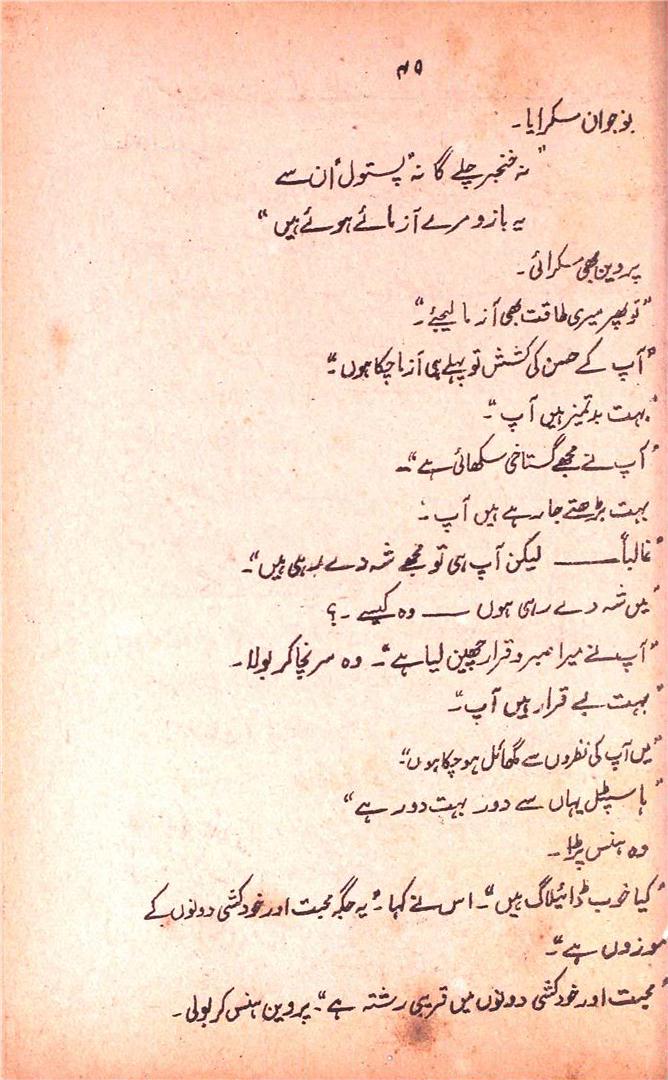 ۴۵
نوجوان مسکرایا۔
"نہ خنجر چلے گا نہ پستول اُن سے
یہ بازو مرے آزمائے ہوئے ہیں"
پروین بھی مسکرائی۔
"تو پھر میری طاقت بھی آزما لیجئے۔"
"آپ کے حسن کی کشش تو پہلے ہی آزما چکا ہوں۔"
"بہت بدتمیز ہیں آپ"۔
"آپ نے مجھے گستاخی سکھائی ہے"۔
بہت بڑھتے جا رہے ہیں آپ۔"
"غالباً ـــــ لیکن آپ ہی تو مجھے شہ دے رہی ہیں"۔
"میں شہ دے رہی ہوں ـــ وہ کیسے۔؟
"آپ نے میرا صبر و قرار چھین لیا ہے"۔ وہ سر نچا کر بولا۔
"بہت بے قرار ہیں آپ۔"
"میں آپ کی نظروں سے گھائل ہو چکا ہوں"۔
"ہاسپٹل یہاں سے دور بہت دور ہے"
وہ ہنس پڑا۔
"کیا خوب ڈائیلاگ ہیں"۔ اس نے کہا۔ "یہ جگہ محبت اور خودکشی دونوں کے
موزوں ہے"۔
"محبت اور خودکشی دونوں میں قریبی رشتہ ہے"۔ پروین ہنس کر بولی۔